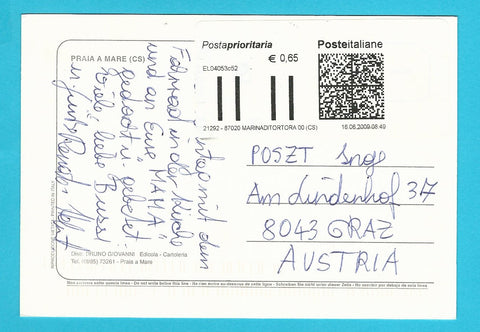 PRAIA A MARE (CS)
Postaprioritaria
Posteitaliane
€ 0,65
EL04053c52
21292 - 87020 MARINADITORTORA 00 (CS)
16.06.2009 08.49
mit dem
Fahrrad in der Kirche
und an Eure "MAMA"
gedacht u. gebetet.
Viele liebe Bussi
POSZT Inge
Am Lindenhof 37
8043 GRAZ
AUSTRIA
Distr. TRIUNO GIOVANNI Edicola - Cartoleria
Tel. (0985) 73261 - Praia a Mare
RIPRODUZIONE VIETATA - PRINTED IN ITALY
Non scrivere sotto questa linea - Do not write below this line - Ne rien écrire au-dessous de cette ligne - Schreiben Sie nicht unter dieser Zeile - No escribir por debajo de esta línea